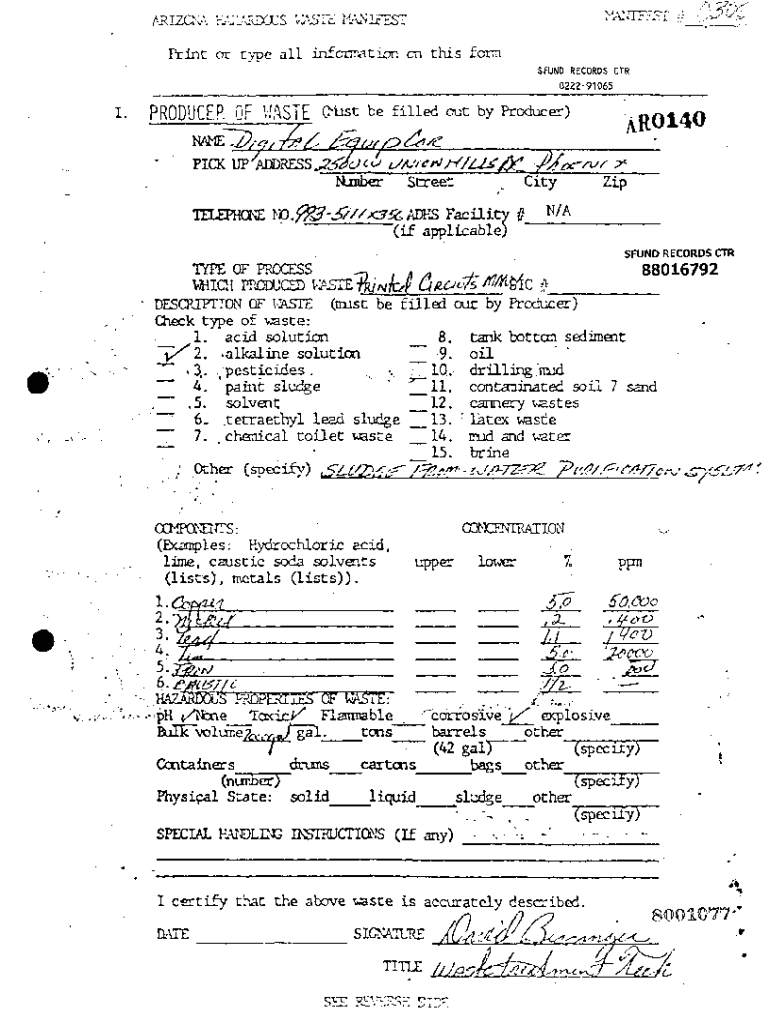 ARIZONA HAZARDOUS WASTE MANIFEST MANIFEST #
Print or type all information on this form
SFUND RECORDS CTR
0222-91065
I. PRODUCER OF WASTE (Must be filled out by Producer)
AR0140
NAME Digital Equip Cor
PICK UP ADDRESS 2500 W UNION HILLS DR Phoenix
Number Street City Zip
TELEPHONE NO. 993-5111x356 ADHS Facility # N/A
(if applicable)
SFUND RECORDS CTR
88016792
TYPE OF PROCESS
WHICH PRODUCED WASTE Printed Circuits #
DESCRIPTION OF WASTE (must be filled out by Producer)
Check type of waste:
1. acid solution 8. tank bottom sediment
✓ 2. alkaline solution 9. oil
3. pesticides. 10. drilling mud
4. paint sludge 11. contaminated soil 7 sand
5. solvent 12. cannery wastes
6. tetraethyl lead sludge 13. latex waste
7. chemical toilet waste 14. mud and water
15. brine
Other (specify) SLUDGE FROM WATER PURIFICATION SYSTEM
COMPONENTS: CONCENTRATION
(Examples: Hydrochloric acid,
lime, caustic soda solvents upper lower % ppm
(lists), metals (lists)).
1. Copper 5.0 50,000
2. Nickel .2 .400
3. Lead 1.1 1400
4. Tin 5.0 20000
5. IRON 3.0
6. CAUSTIC 1/2 —
HAZARDOUS PROPERTIES OF WASTE:
pH ✓ None Toxic ✓ Flammable corrosive ✓ explosive
Bulk volume gal. tons barrels other
(42 gal) (specify)
Containers drums cartons bags other
(number) (specify)
Physical State: solid liquid sludge other
(specify)
SPECIAL HANDLING INSTRUCTIONS (If any)
I certify that the above waste is accurately described.
8001077
DATE SIGNATURE David
TITLE Waste treatment Tech
SEE REVERSE SIDE